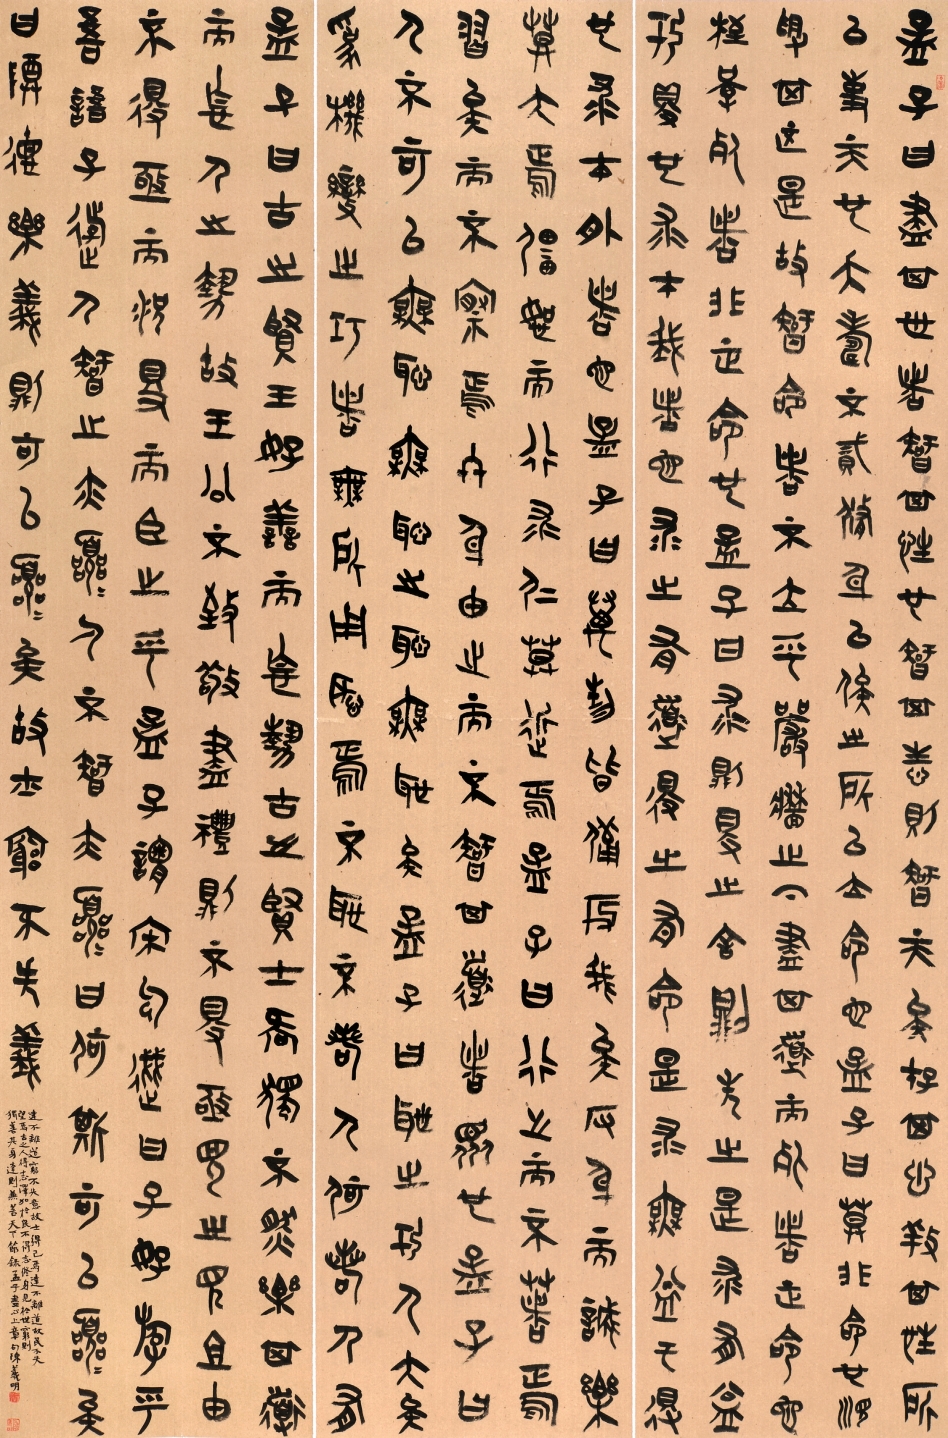 孟子曰盡其心者智其性也智其性則智天矣存其心養其性所
以事天也夭壽不貳修身以俟之所以立命也孟子曰莫非命也順
受其正是故智命者不立乎巖牆之下盡其道而死者正命也
桎梏死者非正命也孟子曰求則得之舍則失之是求有益
於得也求在我者也求之有道得之有命是求無益于得
也求在外者也孟子曰萬物皆備於我矣反身而誠樂
莫大焉強恕而行求仁莫近焉孟子曰行之而不著焉
習矣而不察焉終身由之而不智其道者眾也孟子曰
人不可以無恥無恥之恥無恥矣孟子曰恥之於人大矣
為機變之巧者無所用恥焉不恥不若人何若人有
孟子曰古之賢王好善而忘勢古之賢士何獨不然樂其道
而忘人之勢故王公不致敬盡禮則不得亟見之見且由
不得亟而況得而臣之乎孟子謂宋句踐曰子好遊乎
吾語子遊人智之亦囂囂人不智亦囂囂曰何斯可以囂囂矣
曰尊德樂義則可以囂囂矣故士窮不失義
達不離道窮不失義故士得己焉達不離道故民不失
望焉古之人得志澤加於民不得志修身見於世窮則
獨善其身達則兼善天下節錄孟子盡心上章句陳義明